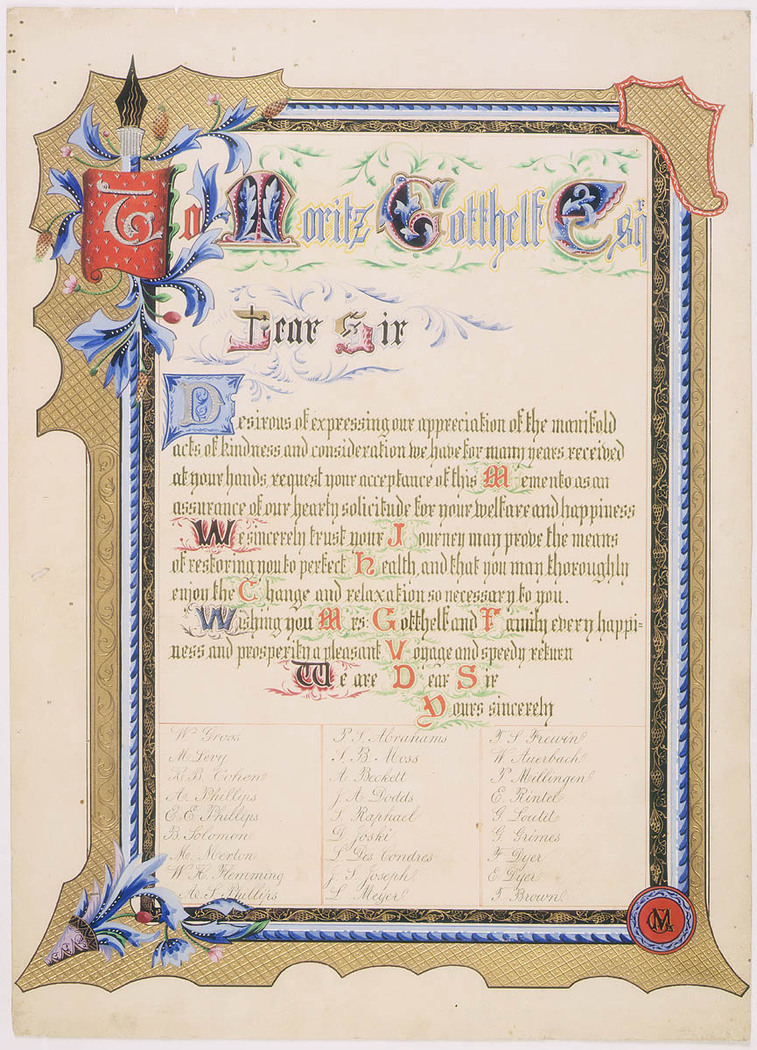 To Moritz Gotthelf Esqr
Dear Sir
Desirous of expressing our appreciation of the manifold
acts of kindness and consideration we have for many years received
at your hands, request your acceptance of this Memento as an
assurance of our hearty solicitude for your welfare and happiness
We sincerely trust your Journey may prove the means
of restoring you to perfect Health, and that you may thoroughly
enjoy the Change and relaxation so necessary to you.
Wishing you Mrs Gotthelf and Family every happi=
ness and prosperity a pleasant Voyage and speedy return
We are Dear Sir
Yours sincerely
Wm Groos
M. Levy
B. Cohen
A. Phillips
E. E. Phillips
B. Solomon
M. Merton
W. H. Flemming
A. S. Phillips
P. S. Abrahams
S. B. Moss
A. Beckett
J. A. Dodds
S. Raphael
D. Joski
L. Des Condres
J. S. Joseph
L. Meyer
F. S. Frewin
W. Auerbach
P. Millingen
E. Rintel
G. Loutit
G. Grimes
F. Dyer
E. Dyer
T. Brown